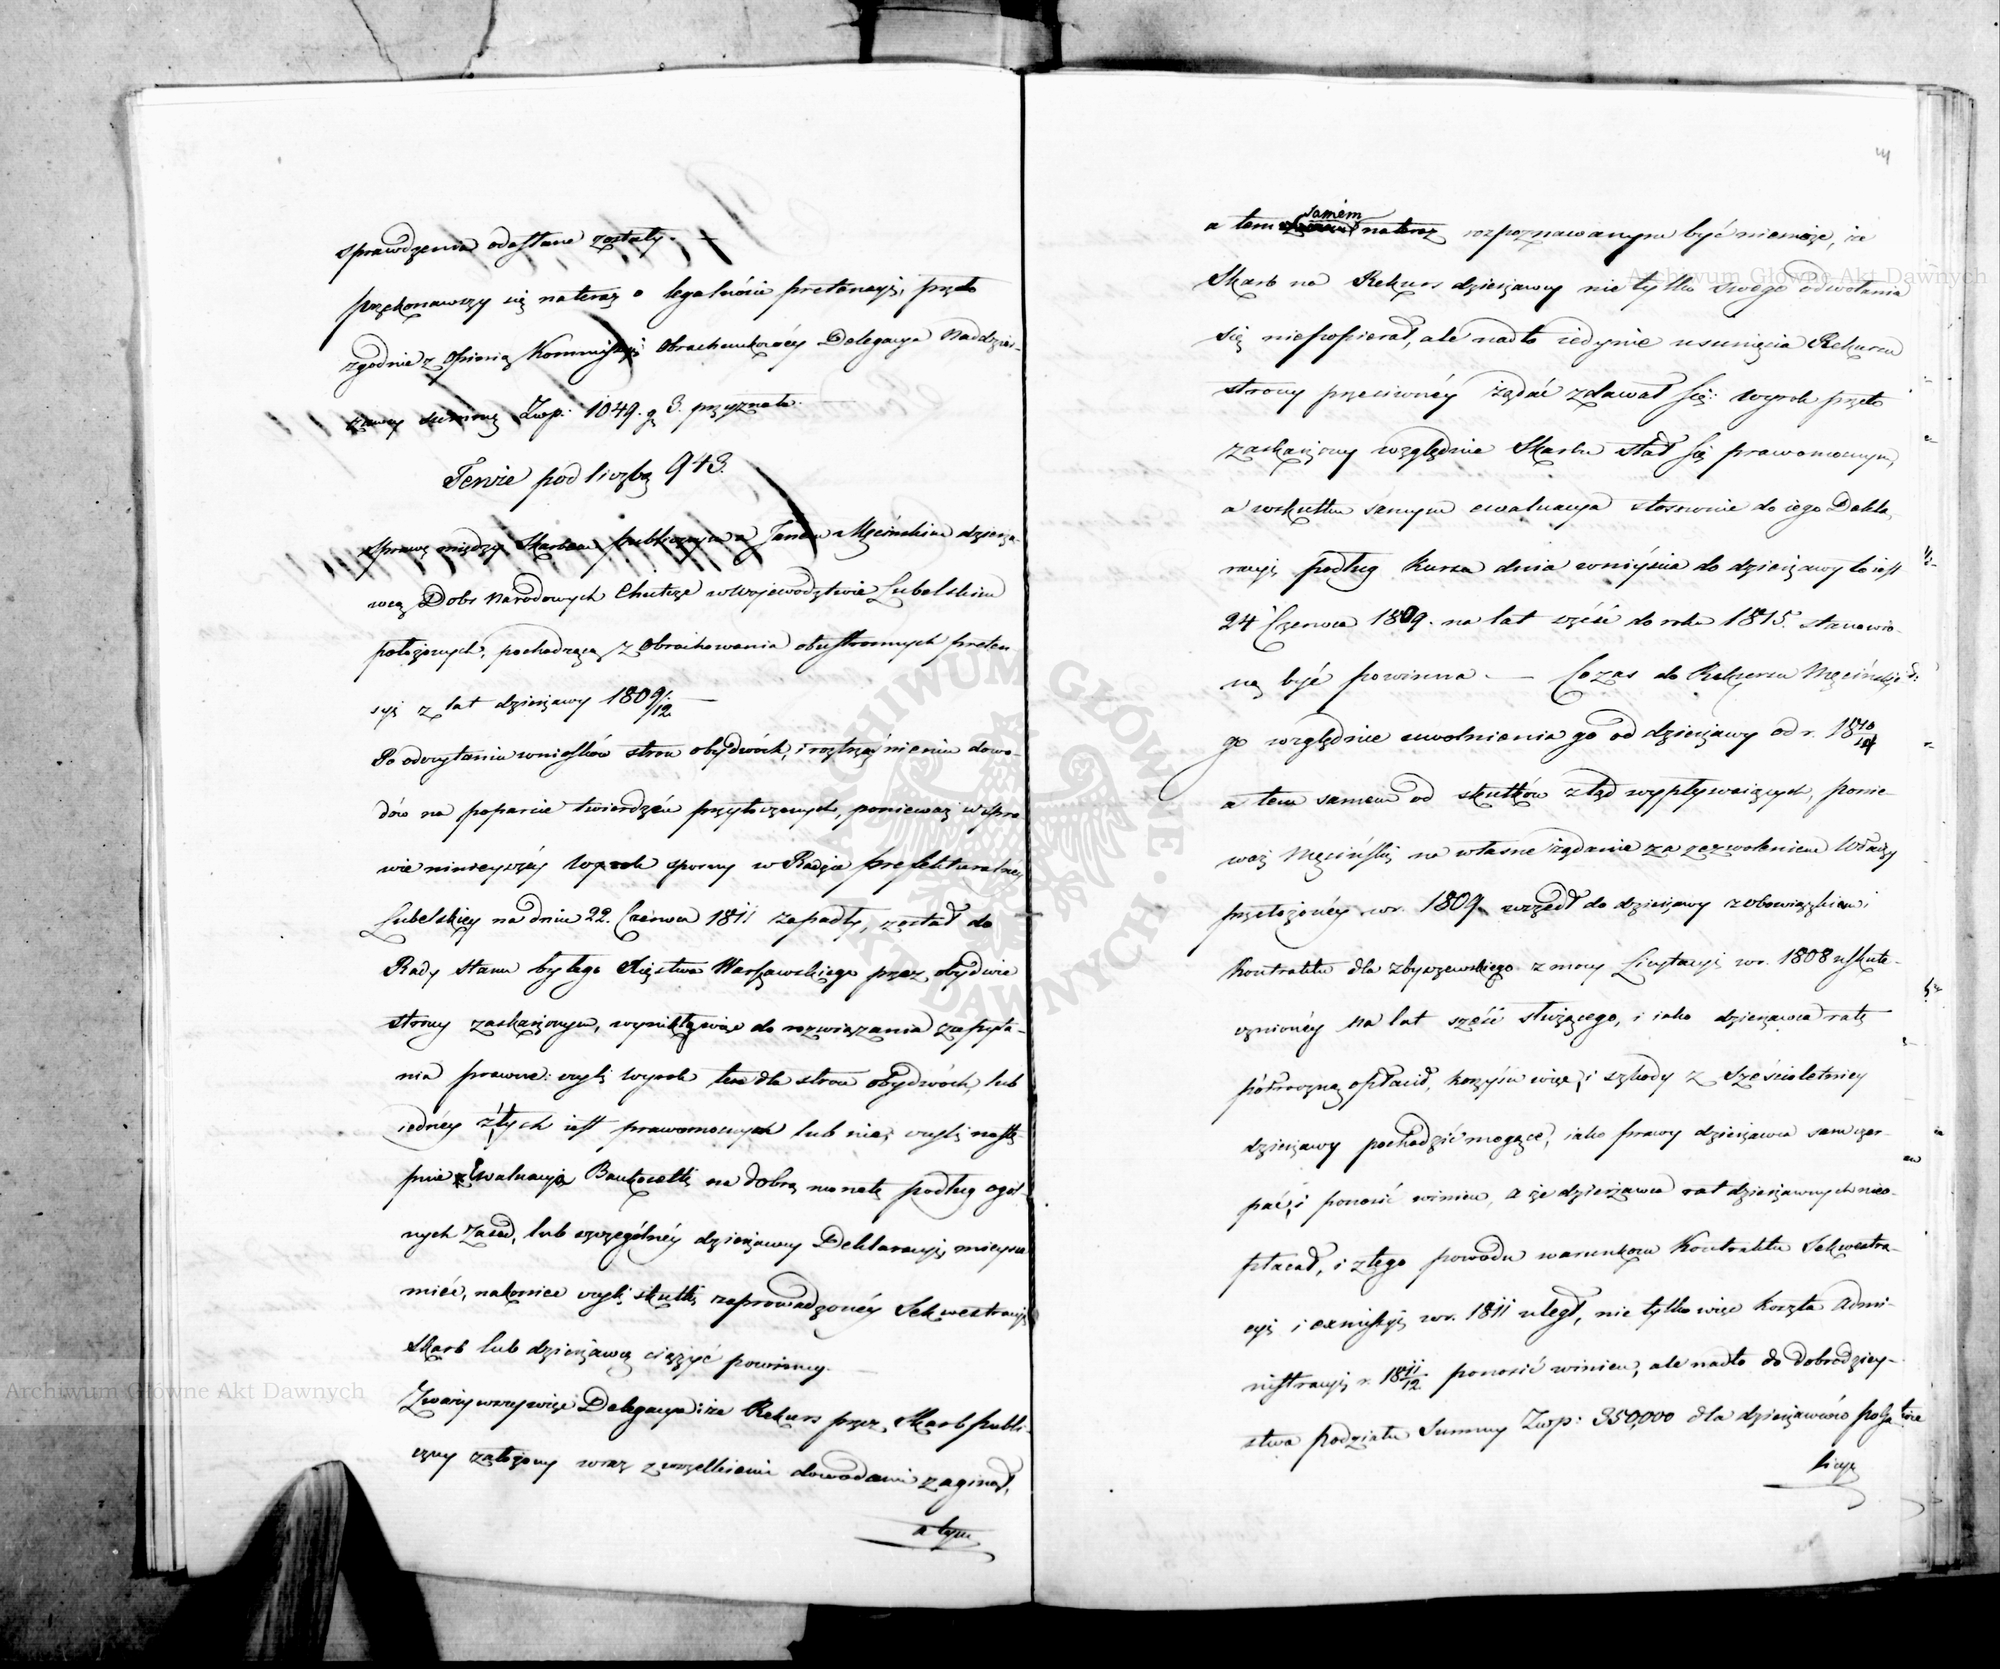 sprawdzenia odesłane zostały. —
przekonawszy się nateraz o legalności pretensyi, przeto
zgodnie z Opinią Kommissyi Obrachunkowéy Delegacya Naddzier-
żawcy summę Złp: 1049. g 3. przyznała. —
Tenże pod liczbą 943.
Sprawę między Skarbem publicznym a Janem Męcińskim dzierża-
wcą Dobr Narodowych Chutcze w Województwie Lubelskim
położonych, pochodzącą z Obrachowania obustronnych preten
syi z lat dzierżawy 1809/12. —
Po odczytaniu wniosków stron obydwóch, i roztrząśnieniu dowo-
dów na poparcie twierdzeń przytoczonych, ponieważ w Spra-
wie ninieyszéy Wyrok sporny w Radzie prefekturalney
Lubelskiey na dniu 22. Czerwca 1811 zapadły, został do
Rady stanu byłego Xięstwa Warszawskiego przez obydwie
strony zaskarżonym, wynikły więc do rozwiązania zapyta-
nia prawne: czyli Wyrok ten dla stron obydwóch, lub
iednéy z tych iest prawomocnych lub nie; czyli nastę-
pnie Ewaluacya Bankocetli na dobrą monetę podług ogól-
nych Zasad, lub szczególnéy dzierżawcy Deklaracyi mieysce
mieć, nakoniec czyli skutki zaprowadzonéy Sekwestracyi
Skarb lub dzierżawcę ciężyć powinny. —
Zważywszy więc Delegacya iż Rekurs przez Skarb publi-
czny założony wraz z wszelkiemi dowodami zaginął,
a tym
4
a tem samém nateraz rozpoznawanym być niemoże, że
Skarb na Rekurs dzierżawcy nie tylko swego odwołania
się niepopierał, ale nadto iedynie usunięcia Rekursu
strony przeciwnéy żądać zdawał się: Wyrok przeto
zaskarżony względnie Skarbu stał się prawomocnym,
a wskutku samym ewaluacya stosownie do iego Dekla-
racyi podług Kursu dnia wniyścia do dzierżawy to iest
24 Czerwca 1809. na lat sześć do roku 1815. stanowio-
ną być powinna. — Co zas do Rekursu Męcińskie-
go względnie uwolnienia go od dzierżawy od r. 1810/11
a tem samem od skutków ztąd wypływaiących, ponie-
waż Męciński na własne żądanie za zezwoleniem Władzy
przełożonéy w r. 1809 wszedł do dzierżawy z obowiązkiem i
Kontraktu dla Zbyszewskiego z mocy Licytacyi w r. 1808 uskute-
cznionéy na lat sześć służącego, i iako dzierżawca ratę
półroczną opłacił, korzyści więc, i szkody z Sześcioletniey
dzierżawy pochodzić mogące, iako prawy dzierżawca sam czer-
pać, i ponosić winien, a że dzierżawca rat dzierżawnych nieo-
płacał, i z tego powodu warunkom Kontraktu Sekwestra-
cyi i exmissyi w r. 1811 uległ, nie tylko więc koszta Admi-
nistracyi r. 1811/12 ponosić winien, ale nadto do dobrodziey-
stwa podziału Summy Złp: 350,000 dla dzierżawców